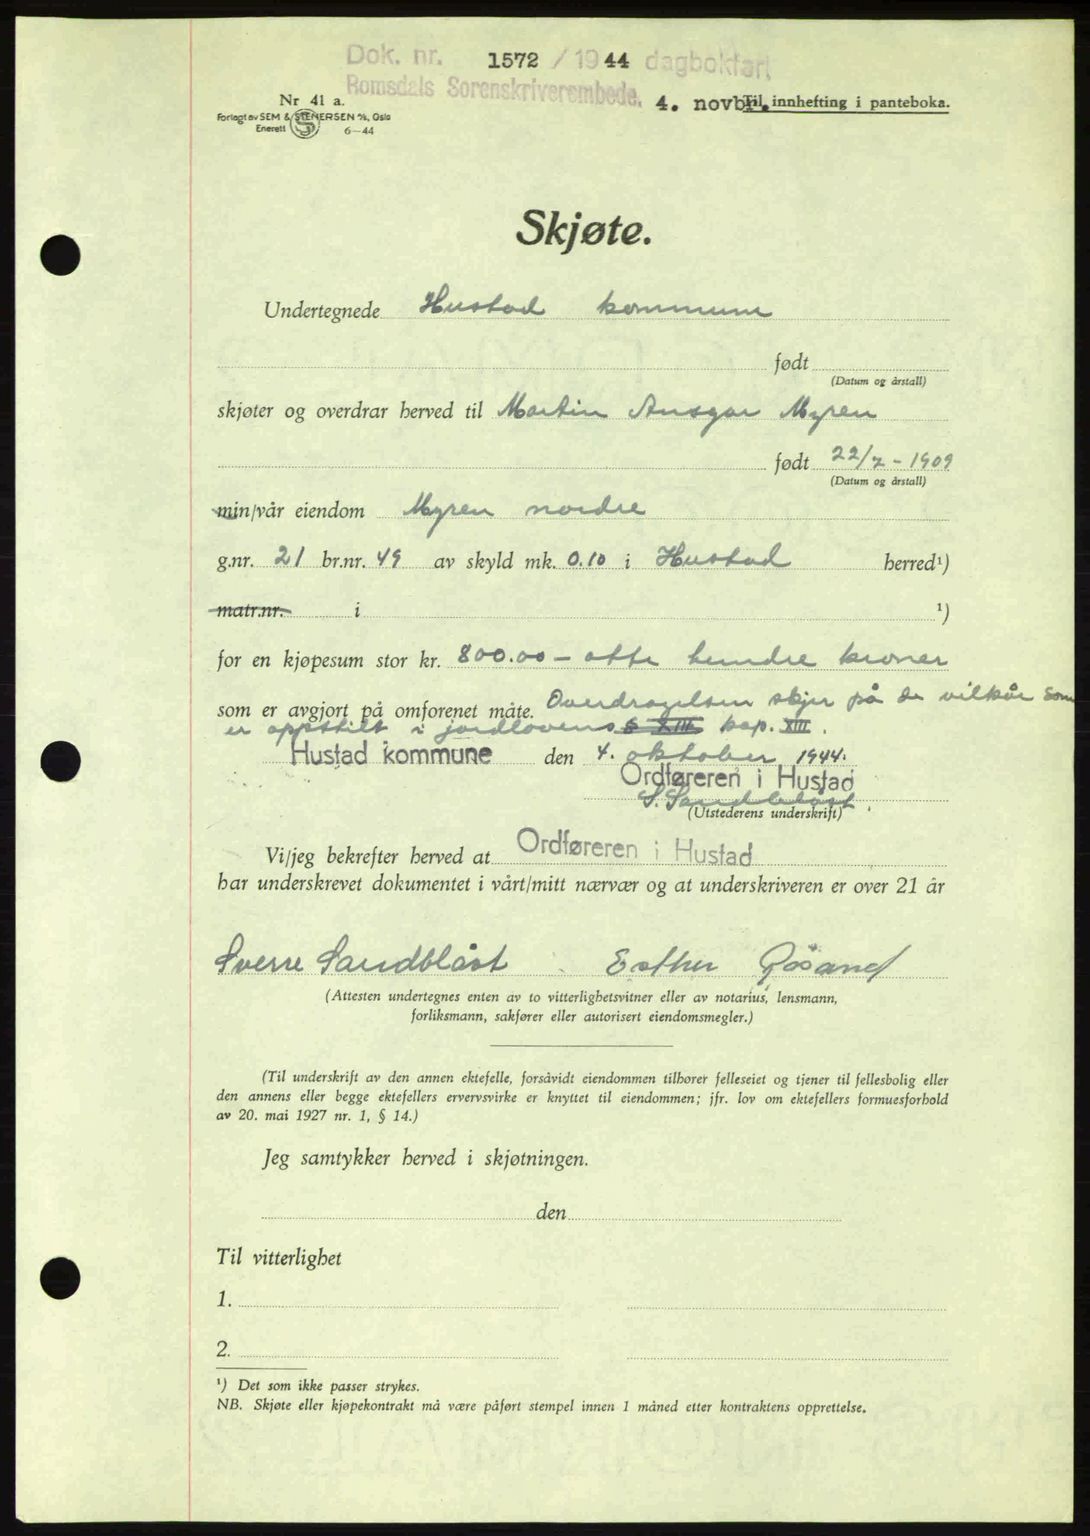 Dok. nr. 1572 / 1944 dagbokført
Romsdals Sorenskriverembede. 4. novbr.
Til innhefting i panteboka.
Nr 41 a.
Forlagt av SEM & STENERSEN A/S, Oslo
Enerett S 6—44
Skjøte.
Undertegnede Hustad kommune
født
(Datum og årstall)
skjøter og overdrar herved til Martin Ansgar Myren
født 22/7 - 1909
(Datum og årstall)
min/vår eiendom Myren nordre
g.nr. 21 br.nr. 49 av skyld mk. 0.10 i Hustad herred¹)
matr.nr. i ¹)
for en kjøpesum stor kr. 800.00 – otte hundre kroner
som er avgjort på omforenet måte. Overdragelsen skjer på de vilkår som
er oppstilt i jordlovens § XIII kap. XIII.
Hustad kommune den 4. oktober 1944.
Ordføreren i Hustad
S. Sandblåst.
(Utstederens underskrift)
Vi/jeg bekrefter herved at Ordføreren i Hustad
har underskrevet dokumentet i vårt/mitt nærvær og at underskriveren er over 21 år
Sverre Sandblåst Esther
(Attesten undertegnes enten av to vitterlighetsvitner eller av notarius, lensmann,
forliksmann, sakfører eller autorisert eiendomsmegler.)
(Til underskrift av den annen ektefelle, forsåvidt eiendommen tilhører felleseiet og tjener til fellesbolig eller
den annens eller begge ektefellers ervervsvirke er knyttet til eiendommen; jfr. lov om ektefellers formuesforhold
av 20. mai 1927 nr. 1, § 14.)
Jeg samtykker herved i skjøtningen.
den
Til vitterlighet
1.
2.
¹) Det som ikke passer strykes.
NB. Skjøte eller kjøpekontrakt må være påført stempel innen 1 måned etter kontraktens opprettelse.